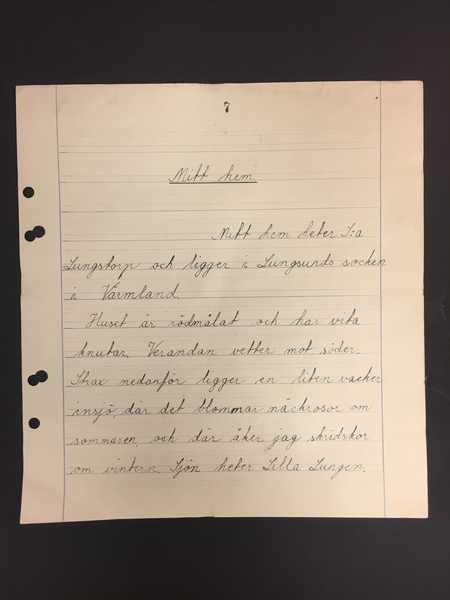 7
Mitt hem.
Mitt hem heter S:a
Lungstorp och ligger i Lungsunds socken
i Värmland.
Huset är rödmålat och har vita
knutar. Verandan vetter mot söder.
Strax nedanför ligger en liten vacker
insjö, där det blommar näckrosor om
sommaren, och där åker jag skridskor
om vintern. Sjön heter Lilla Lungen.